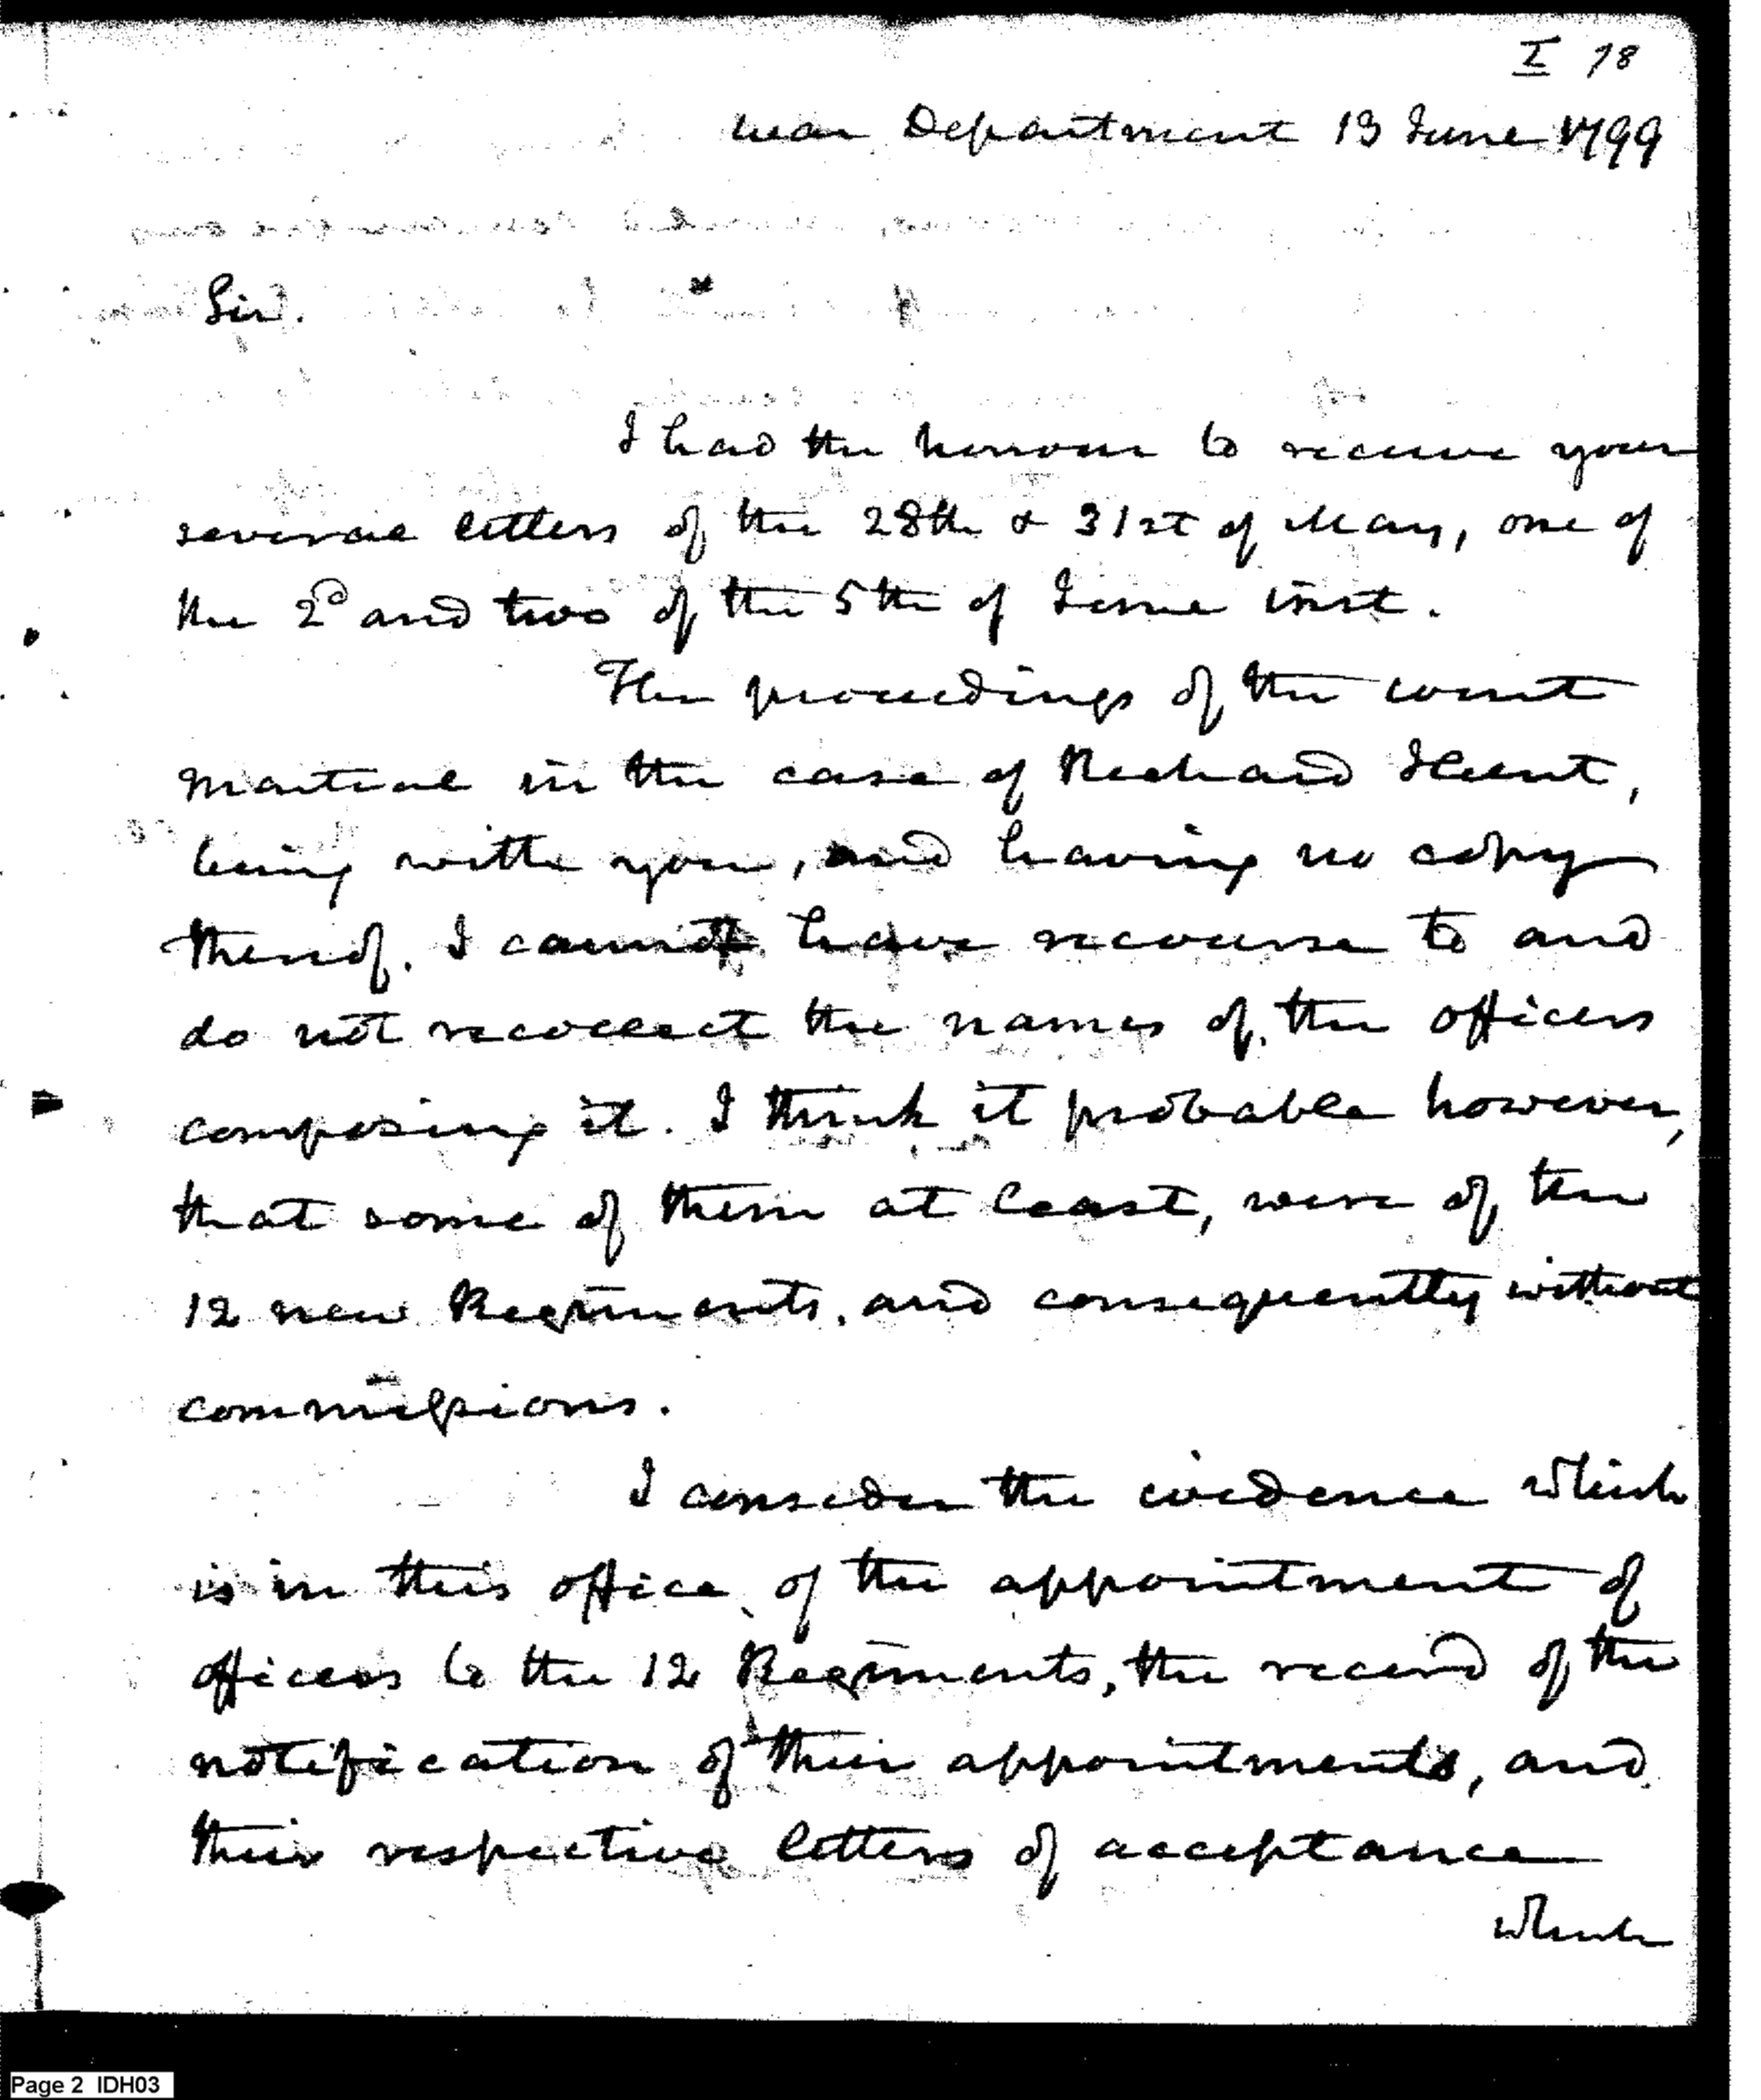 I 78
War Department 13 June 1799
Sir.
I had the honour to receive your
several letters of the 28th & 31st of May, one of
the 2d and two of the 5th of June inst.
The proceedings of the court
martial in the case of Richard Hunt,
being with you, and having no copy
thereof. I cannot have recourse to and
do not recollect the names of the officers
composing it. I think it probable however,
that some of them at least, were of the
12 new Regiments, and consequently without
commissions.
I consider the evidence which
is in this office, of the appointment of
officers to the 12 Regiments, the record of the
notification of their appointments, and
their respective letters of acceptance
which
Page 2 IDH03